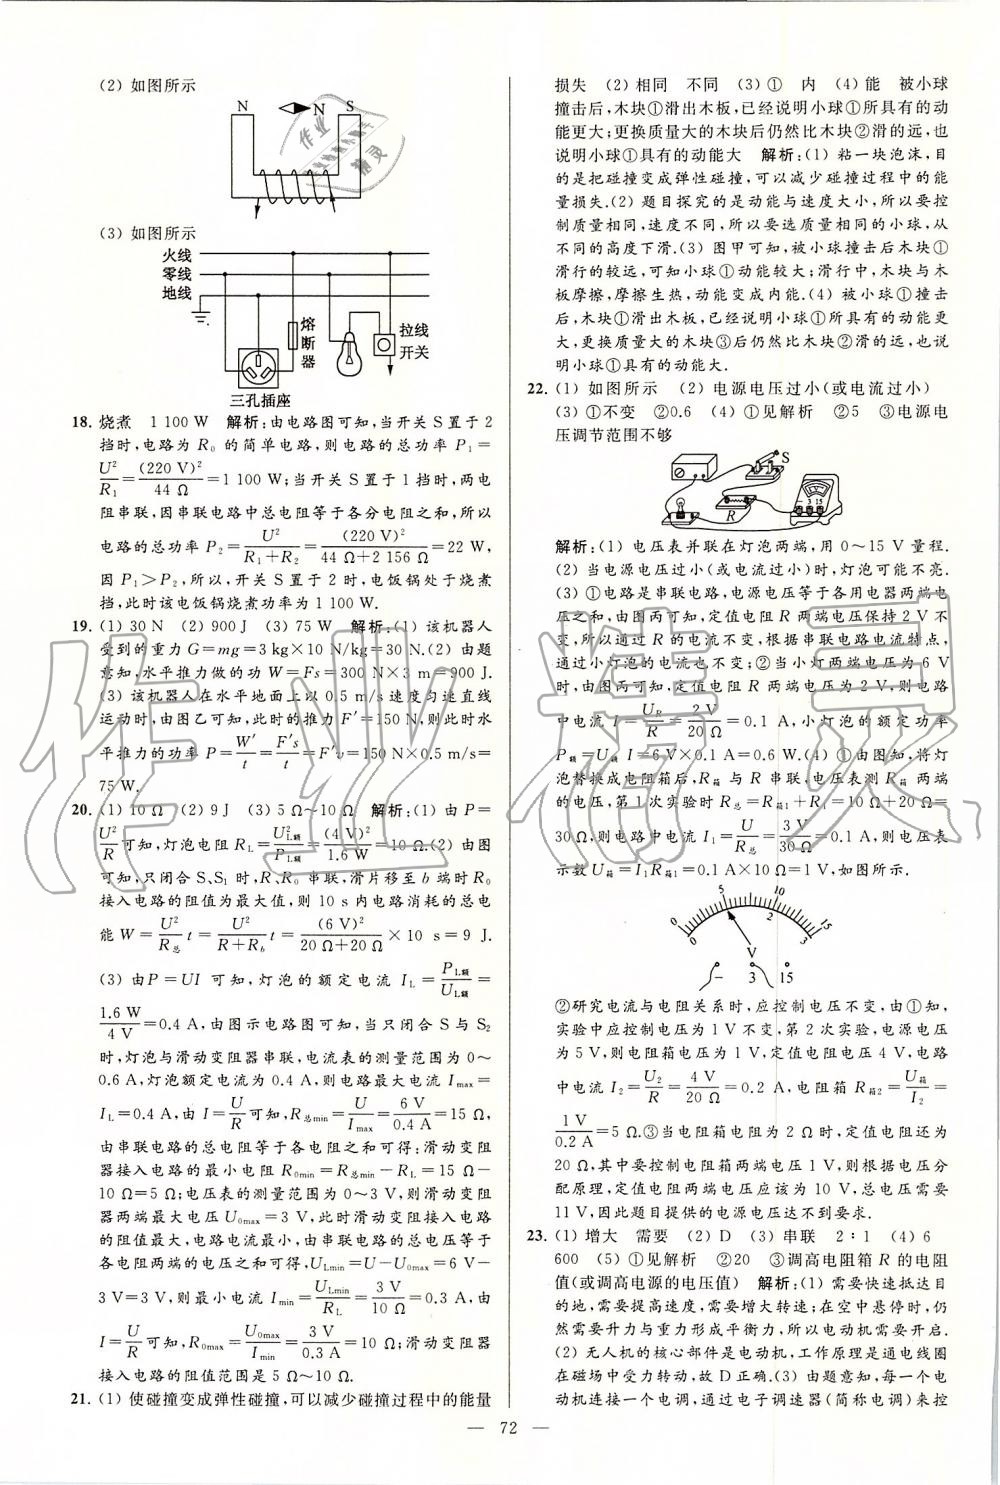 (2) 如图所示
N N S
(3) 如图所示
火线
零线
地线
熔断器
拉线开关
三孔插座
18. 烧煮 1 100 W 解析:由电路图可知,当开关S置于2
挡时,电路为 R₀ 的简单电路,则电路的总功率 P₁=
U²/R₁=(220 V)²/44 Ω=1 100 W;当开关S置于1挡时,两电
阻串联,因串联电路中总电阻等于各分电阻之和,所以
电路的总功率 P₂=U²/(R₁+R₂)=(220 V)²/(44 Ω+2 156 Ω)=22 W,
因 P₁>P₂,所以,开关S置于2时,电饭锅处于烧煮
挡,此时该电饭锅烧煮功率为1 100 W.
19. (1) 30 N (2) 900 J (3) 75 W 解析:(1) 该机器人
受到的重力 G=mg=3 kg×10 N/kg=30 N.(2) 由题
意知,水平推力做的功 W=Fs=300 N×3 m=900 J.
(3) 该机器人在水平地面上以0.5 m/s速度匀速直线
运动时,由图乙可知,此时的推力 F′=150 N,则此时水
平推力的功率 P=W′/t=F′s/t=F′v=150 N×0.5 m/s=
75 W.
20. (1) 10 Ω (2) 9 J (3) 5 Ω~10 Ω 解析:(1) 由 P=
U²/R可知,灯泡电阻 R_L=U²_L额/P_L额=(4 V)²/1.6 W=10 Ω.(2) 由图
可知,只闭合S、S₁时,R、R₀串联,滑片移至b端时R₀
接入电路的阻值为最大值,则10 s内电路消耗的总电
能 W=U²/R总 t=U²/(R+R_b) t=(6 V)²/(20 Ω+20 Ω)×10 s=9 J.
(3) 由P=UI可知,灯泡的额定电流 I_L=P_L额/U_L额=
1.6 W/4 V=0.4 A,由图示电路图可知,当只闭合S与S₂
时,灯泡与滑动变阻器串联,电流表的测量范围为0~
0.6 A,灯泡额定电流为0.4 A,则电路最大电流 I_max=
I_L=0.4 A,由 I=U/R可知,R总min=U/I_max=6 V/0.4 A=15 Ω,
由串联电路的总电阻等于各电阻之和可得:滑动变阻
器接入电路的最小电阻 R₀min=R总min-R_L=15 Ω-
10 Ω=5 Ω;电压表的测量范围为0~3 V,则滑动变阻
器两端最大电压 U₀max=3 V,此时滑动变阻接入电路
的阻值最大,电路电流最小,由串联电路的总电压等于
各电阻两端的电压之和可得,U_Lmin=U-U₀max=6 V-
3 V=3 V,则最小电流 I_min=U_Lmin/R_L=3 V/10 Ω=0.3 A,由
I=U/R可知,R₀max=U₀max/I_min=3 V/0.3 A=10 Ω;滑动变阻器
接入电路的阻值范围是5 Ω~10 Ω.
21. (1) 使碰撞变成弹性碰撞,可以减少碰撞过程中的能量
损失 (2) 相同 不同 (3) ① 内 (4) 能 被小球
撞击后,木块①滑出木板,已经说明小球①所具有的动
能更大;更换质量大的木块后仍然比木块②滑的远,也
说明小球①具有的动能大 解析:(1) 粘一块泡沫,目
的是把碰撞变成弹性碰撞,可以减少碰撞过程中的能
量损失.(2) 题目探究的是动能与速度大小,所以要控
制质量相同,速度不同,所以要选质量相同的小球,从
不同的高度下滑.(3) 图甲可知,被小球撞击后木块①
滑行的较远,可知小球①动能较大;滑行中,木块与木
板摩擦,摩擦生热,动能变成内能.(4) 被小球①撞击
后,木块①滑出木板,已经说明小球①所具有的动能更
大,更换质量大的木块③后仍然比木块②滑的远,也说
明小球①具有的动能大.
22. (1) 如图所示 (2) 电源电压过小(或电流过小)
(3) ①不变 ②0.6 (4) ①见解析 ②5 ③电源电
压调节范围不够
S
R
- 3 15
解析:(1) 电压表并联在灯泡两端,用0~15 V量程.
(2) 当电源电压过小(或电流过小)时,灯泡可能不亮.
(3) ①电路是串联电路,电源电压等于各用电器两端电
压之和,由图丙可知,定值电阻R两端电压保持2 V不
变,所以通过R的电流不变,根据串联电路电流特点,
通过小灯泡的电流也不变;②当小灯两端电压为6 V
时,由图丙可知,定值电阻R两端电压为2 V,则电路
中电流 I=U_R/R=2 V/20 Ω=0.1 A,小灯泡的额定功率
P额=U额I=6 V×0.1 A=0.6 W.(4) ①由图知,将灯
泡替换成电阻箱后,R箱与R串联,电压表测R箱两端
的电压,第1次实验时 R总=R箱1+R=10 Ω+20 Ω=
30 Ω,则电路中电流 I₁=U/R总=3 V/30 Ω=0.1 A,则电压表
示数 U箱=I₁R箱1=0.1 A×10 Ω=1 V,如图所示.
0 5 10 15
0 1 2 3
V
- 3 15
②研究电流与电阻关系时,应控制电压不变,由①知,
实验中应控制电压为1 V不变,第2次实验,电源电压
为5 V,则电阻箱电压为1 V,定值电阻电压4 V,电路
中电流 I₂=U₂/R=4 V/20 Ω=0.2 A,电阻箱 R箱2=U箱/I₂=
1 V/0.2 A=5 Ω.③当电阻箱电阻为2 Ω时,定值电阻还为
20 Ω,其中要控制电阻箱两端电压1 V,则根据电压分
配原理,定值电阻两端电压应该为10 V,总电压需要
11 V,因此题目提供的电源电压达不到要求.
23. (1) 增大 需要 (2) D (3) 串联 2∶1 (4) 6
600 (5) ①见解析 ②20 ③调高电阻箱R的电阻
值(或调高电源的电压值) 解析:(1) 需要快速抵达目
的地,需要提高速度,需要增大转速;在空中悬停时,仍
然需要升力与重力形成平衡力,所以电动机需要开启.
(2) 无人机的核心部件是电动机,工作原理是通电线圈
在磁场中受力转动,故D正确.(3) 由题意知,每一个电
机连接一个电调,通过电子调速器(简称电调)来控
— 72 —
作业精灵